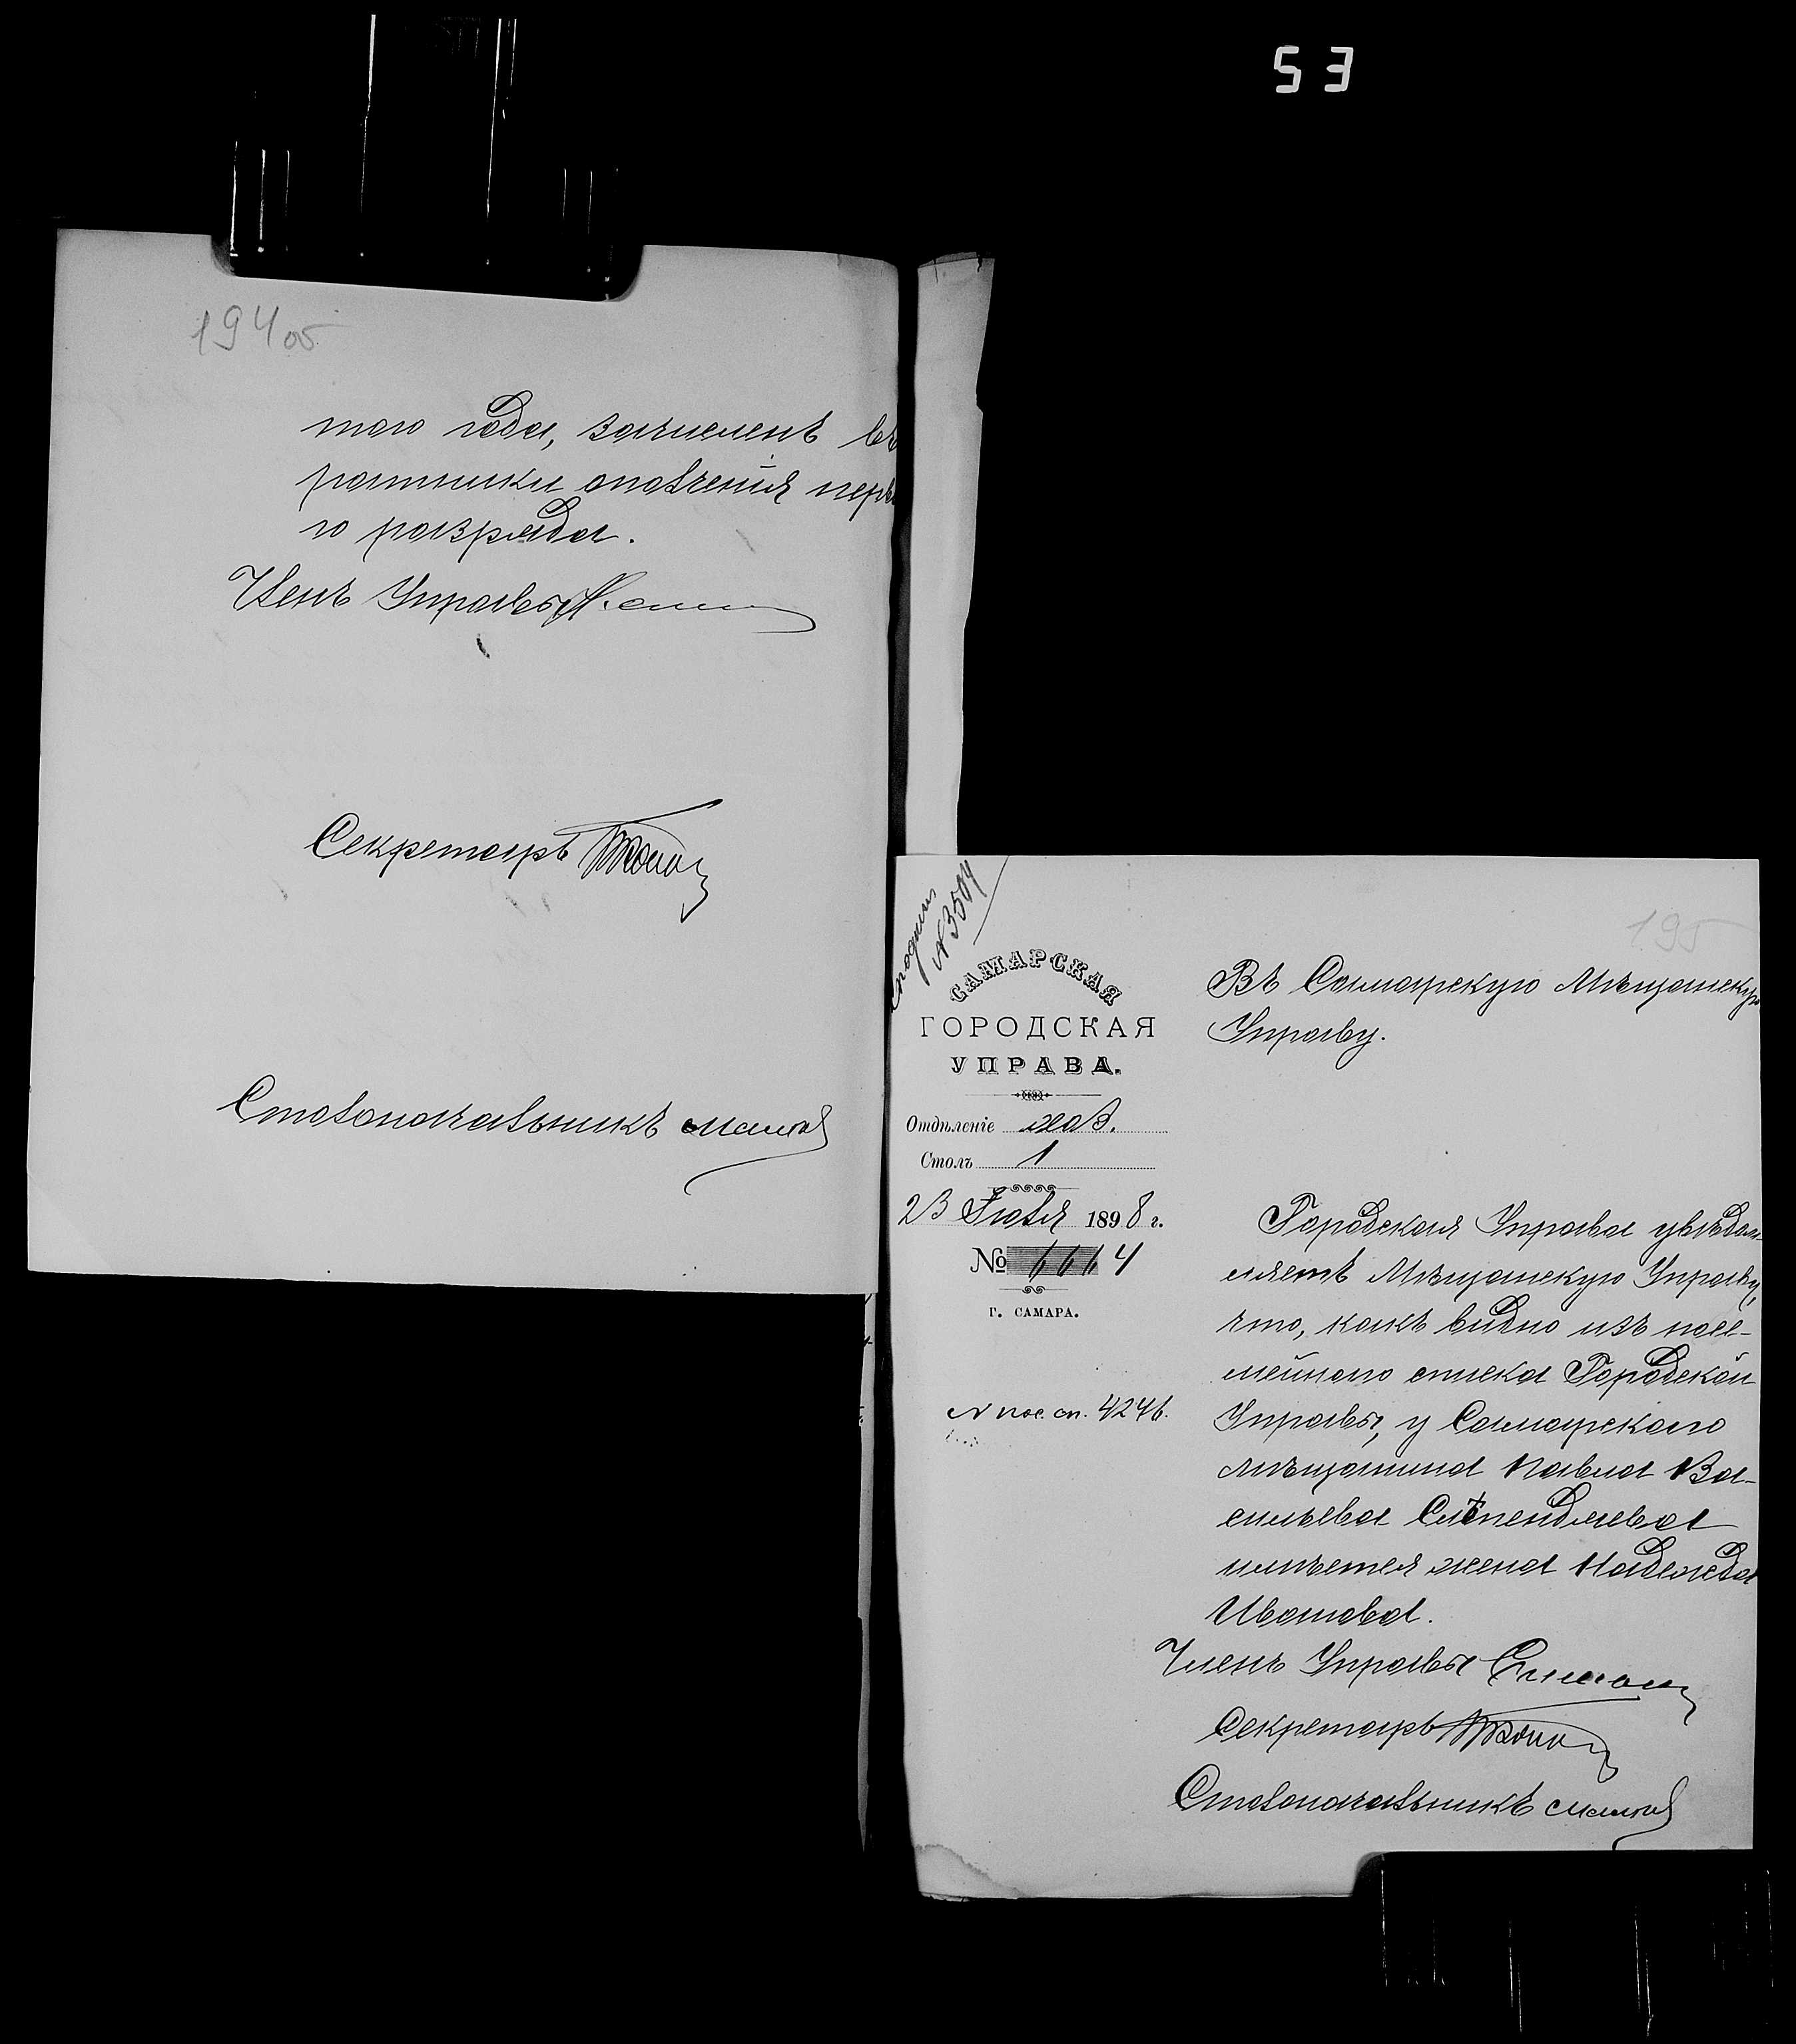 53
194 об
того года, зачисленъ въ
ратники ополченія перва
го разряда.
Членъ Управы
Секретарь
Столоначальникъ
195
№ 3504
САМАРСКАЯ
ГОРОДСКАЯ
УПРАВА.
Отдѣленіе хоз.
Столъ 1
23 Іюля 1898 г.
№ 6664
Г. САМАРА.
N пос. сп. 4246.
Въ Самарскую Мѣщанскую
Управу.
Городская Управа увѣдом-
ляетъ Мѣщанскую Управу,
что, какъ видно изъ посе-
мейнаго списка Городской
Управы, у Самарскаго
мѣщанина Павла Ва-
сильева Слѣпендяева
имѣется жена Надежда
Иванова.
Членъ Управы
Секретарь
Столоначальникъ